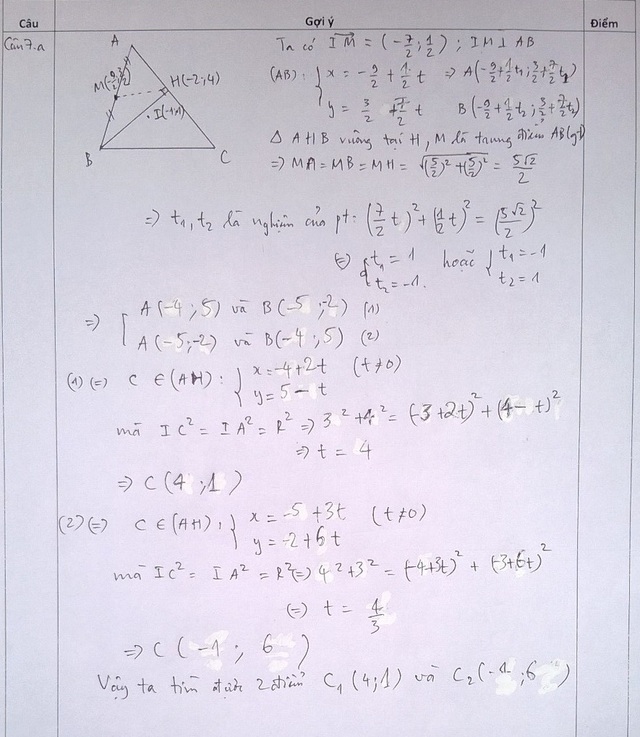 Câu Gợi ý Điểm
Câu 7.a
A
M(-9/2; 3/2)
H(-2;4)
I(-1;1)
B C
Ta có IM⃗ = (-7/2; 1/2) ; IM ⊥ AB
(AB): { x = -9/2 + 1/2 t ⇒ A(-9/2 + 1/2 t₁; 3/2 + 7/2 t₁)
y = 3/2 + 7/2 t B(-9/2 + 1/2 t₂; 3/2 + 7/2 t₂)
Δ AHB vuông tại H, M là trung điểm AB (gt)
⇒ MA = MB = MH = √((5/2)² + (5/2)²) = 5√2/2
⇒ t₁, t₂ là nghiệm của pt: (7/2 t)² + (1/2 t)² = (5√2/2)²
⇔ { t₁ = 1 hoặc { t₁ = -1
t₂ = -1. t₂ = 1
⇒ [ A(-4; 5) và B(-5; -2) (1)
A(-5; -2) và B(-4; 5) (2)
(1) ⇔ C ∈ (AH): { x = -4 + 2t (t ≠ 0)
y = 5 - t
mà IC² = IA² = R² ⇒ 3² + 4² = (-3 + 2t)² + (4 - t)²
⇒ t = 4
⇒ C(4; 1)
(2) ⇔ C ∈ (AH): { x = -5 + 3t (t ≠ 0)
y = -2 + 6t
mà IC² = IA² = R² ⇔ 4² + 3² = (-4 + 3t)² + (-3 + 6t)²
⇔ t = 4/3
⇒ C(-1; 6)
Vậy ta tìm được 2 điểm C₁(4;1) và C₂(-1;6)